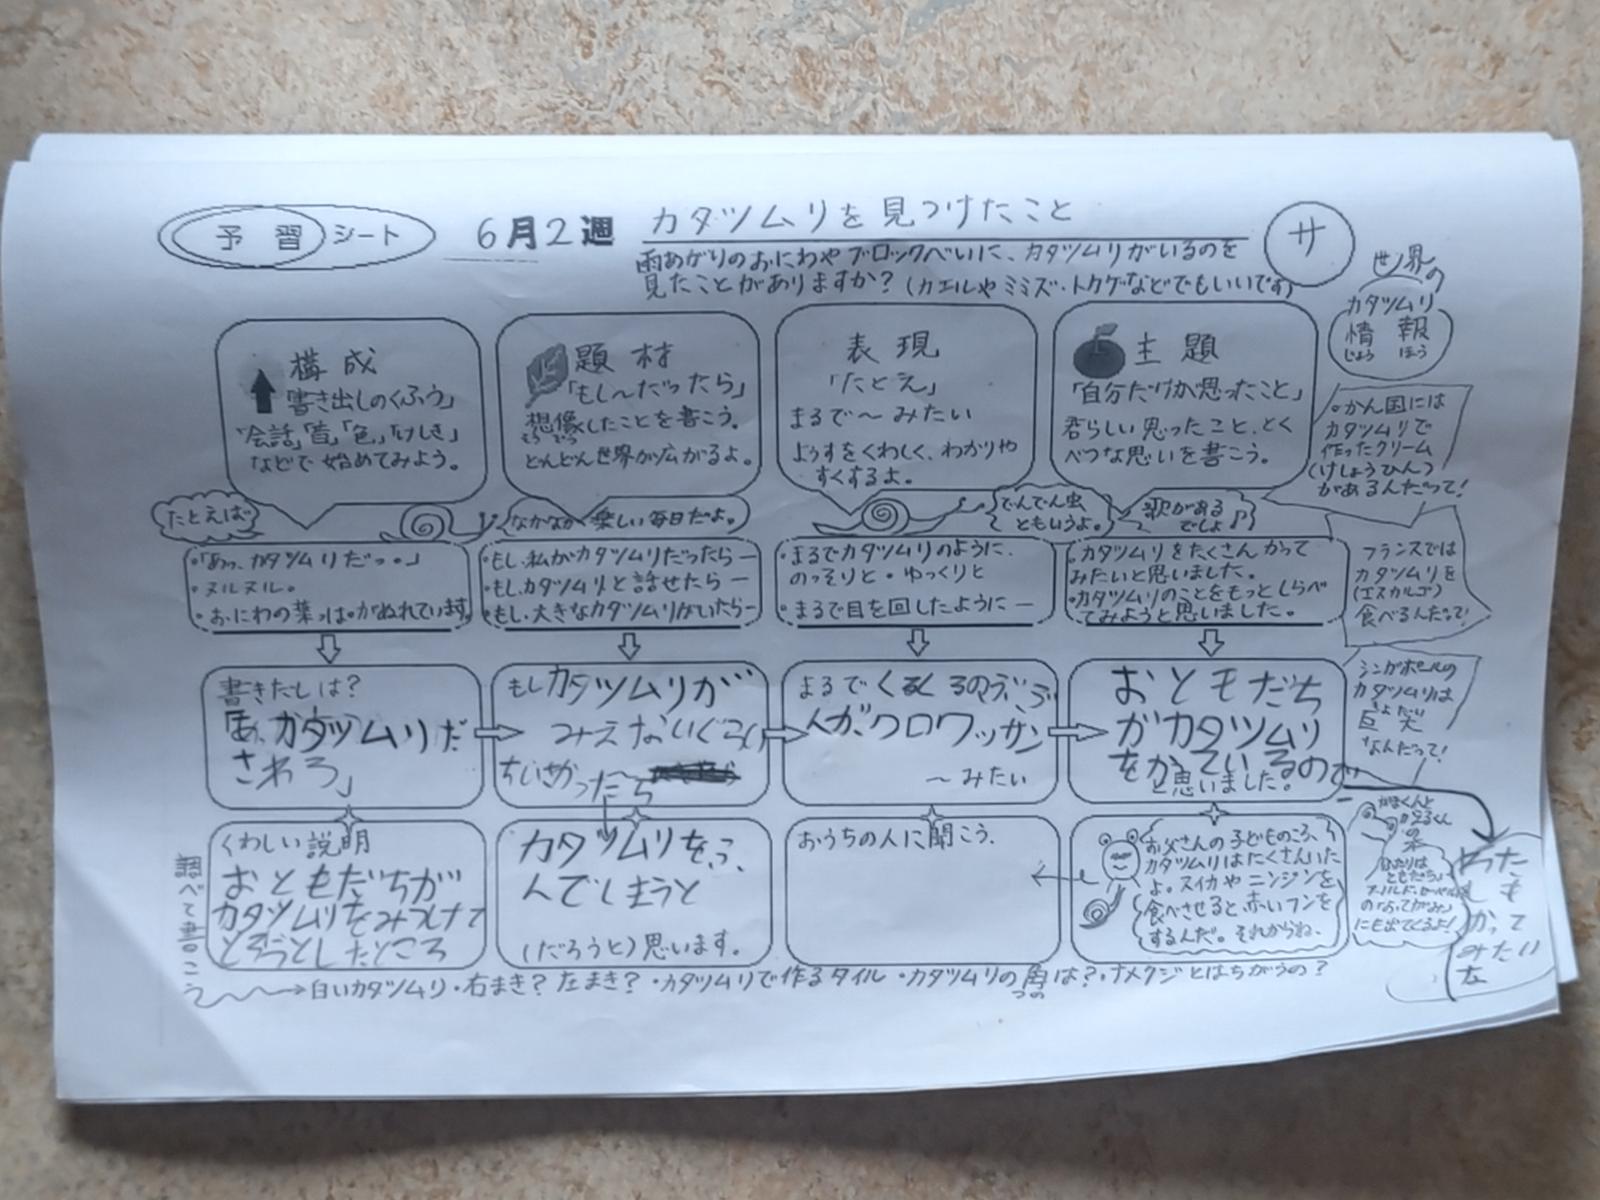 予習シート
6月2週
カタツムリを見つけたこと
サ
雨あがりのおにわやブロックべいに、カタツムリがいるのを
見たことがありますか?(カエルやミミズ・トカゲなどでもいいです)
世界の
カタツムリ
情報
じょう ほう
構成
「書き出しのくふう」
「会話」「音」「色」「けしき」
などで始めてみよう。
題材
「もし〜だったら」
想像したことを書こう。
そう ぞう
どんどん世界が広がるよ。
表現
「たとえ」
まるで〜みたい
ようすをくわしく、わかりや
すくするよ。
主題
「自分だけが思ったこと」
君らしい思ったこと、とく
べつな思いを書こう。
・かん国には
カタツムリで
作ったクリーム
(けしょうひん)
があるんだって!
たとえば
なかなか楽しい毎日だよ。
でんでん虫
ともいうよ。
歌がある
でしょ♪
・「あっ、カタツムリだっ。」
・ヌルヌル。
・おにわの葉っぱがぬれています。
・もし、私がカタツムリだったら―
・もし、カタツムリと話せたら―
・もし、大きなカタツムリがいたら―
・まるでカタツムリのように、
のっそりと・ゆっくりと
・まるで目を回したように―
・カタツムリをたくさんかって
みたいと思いました。
・カタツムリのことをもっとしらべ
てみようと思いました。
フランスでは
カタツムリを
(エスカルゴ)
食べるんだって!
書きだしは?
「あ、カタツムリだ
さわろ」
もしカタツムリが
みえないぐらい
ちいさかったら
まるでくるくるのぶぶ
んが、クロワッサン
〜みたい
おともだち
がカタツムリ
をかっているので
と思いました。
シンガポールの
カタツムリは
きょだい
巨大
なんだって!
くわしい説明
おともだちが
カタツムリをみつけて
とろうとしたところ
カタツムリをふ
んでしまうと
(だろうと)思います。
おうちの人に聞こう。
お父さんの子どものころ、
カタツムリはたくさんいた
よ。スイカやニンジンを
食べさせると、赤いフンを
するんだ。それからね、
がまくんと
かえるくん
の本
ふたりは
ともだち
アーノルド・ローベル
の「おてがみ」
にも出てくるよ!
わたし
も
かって
みたい
な
調べて書こう
白いカタツムリ・右まき?左まき?・カタツムリで作るタイル・カタツムリの角は?・ナメクジとはちがうの?
つの